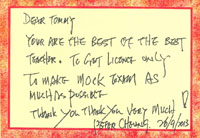 DEAR TOMMY
YOUR ARE THE BEST OF THE BEST
TEACHER. TO GET LICENCE ONLY
TO MAKE MOCK EXAM AS
MUCH AS POSSIBLE
THANK YOU THANK YOU VERY MUCH
PETER CHEUNG 28/9/2013